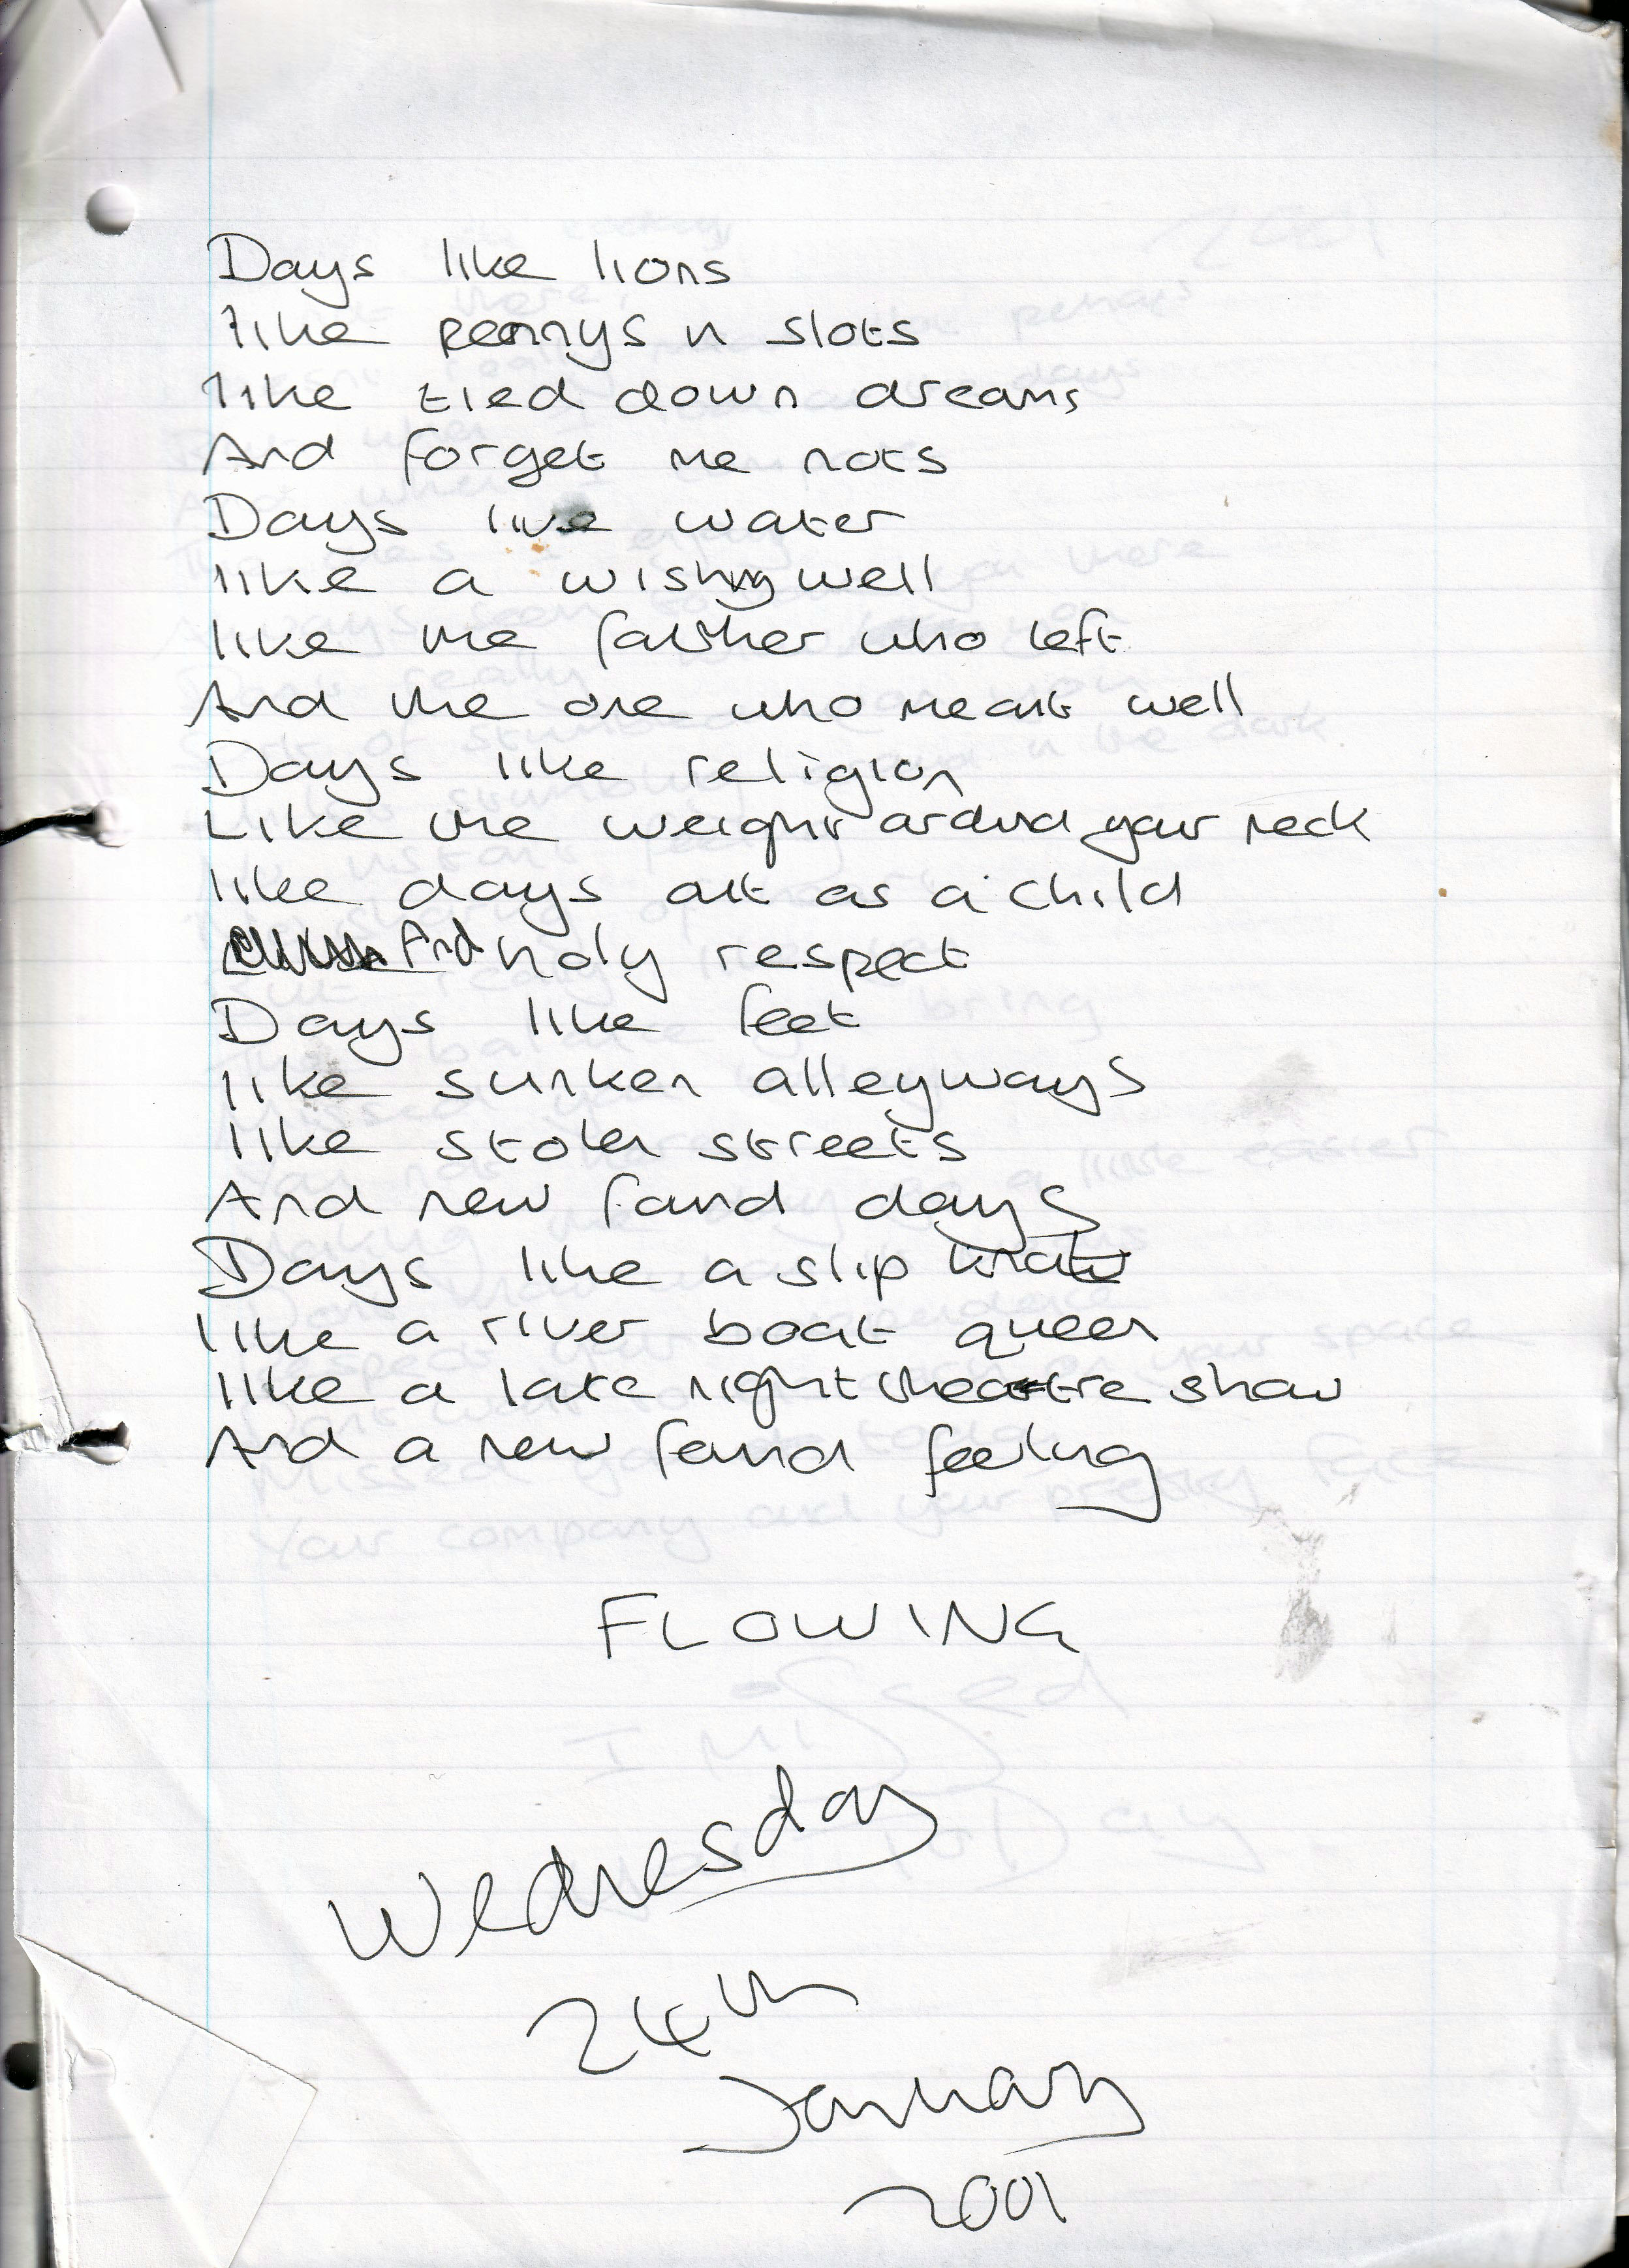 Days like lions
like pennys in slots
like tied down dreams
And forget me nots
Days like water
like a wishing well
like the father who left
And the one who meant well
Days like religion
Like the weight around your neck
like days out as a child
And holy respect
Days like feet
like sunken alleyways
like stolen streets
And new found days
Days like a slip knot
like a river boat queen
like a late night theatre show
And a new found feeling
FLOWING
Wednesday
24th
January
2001